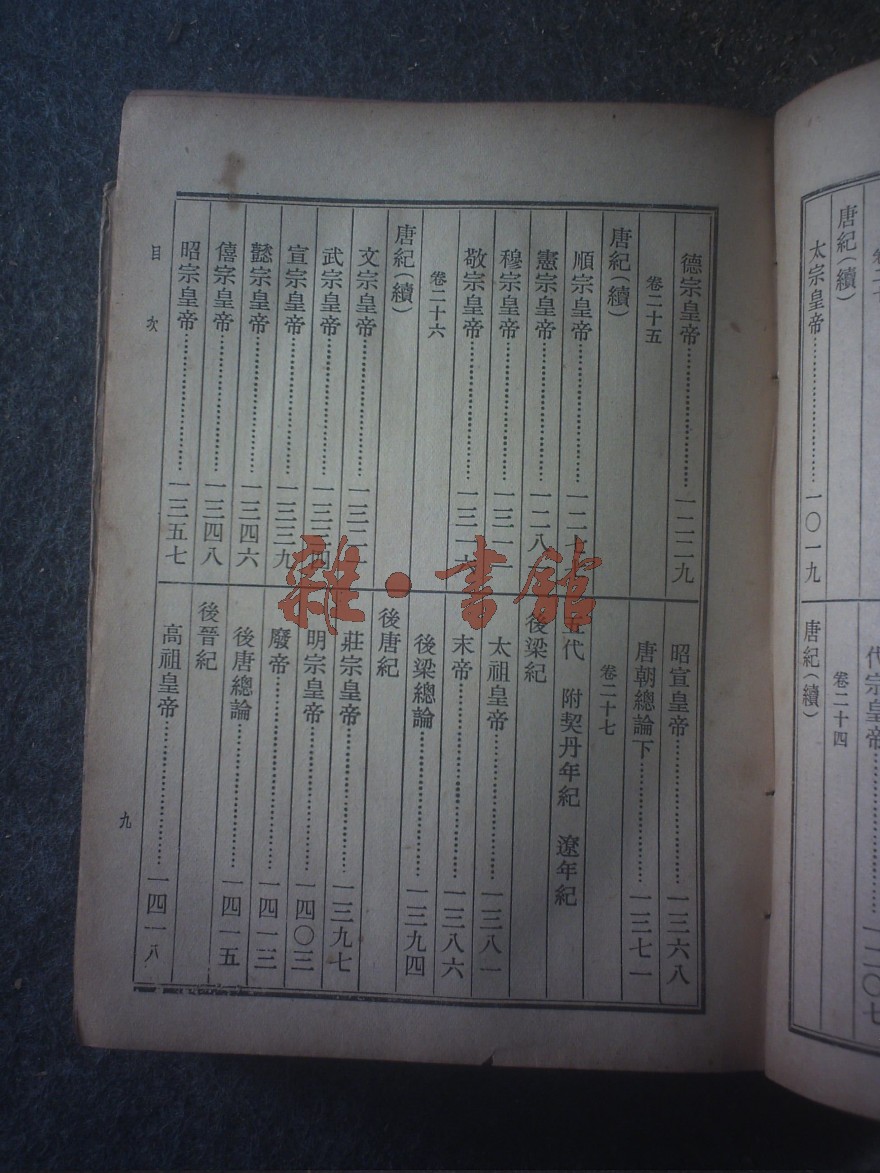 唐紀(續)
太宗皇帝……一〇一九
代宗皇帝……
卷二十四
唐紀(續)
德宗皇帝……一二二九
卷二十五
唐紀(續)
順宗皇帝……
憲宗皇帝……
穆宗皇帝……
敬宗皇帝……
卷二十六
唐紀(續)
文宗皇帝……
武宗皇帝……
宣宗皇帝……一三三九
懿宗皇帝……一三四六
僖宗皇帝……一三四八
昭宗皇帝……一三五七
昭宣皇帝……一三六八
唐朝總論下……一三七一
卷二十七
五代 附契丹年紀 遼年紀
後梁紀
太祖皇帝……一三八一
末帝……一三八六
後梁總論……一三九四
後唐紀
莊宗皇帝……一三九七
明宗皇帝……一四〇三
廢帝……一四一三
後唐總論……一四一五
後晉紀
高祖皇帝……一四一八
目次
九
雜·書館